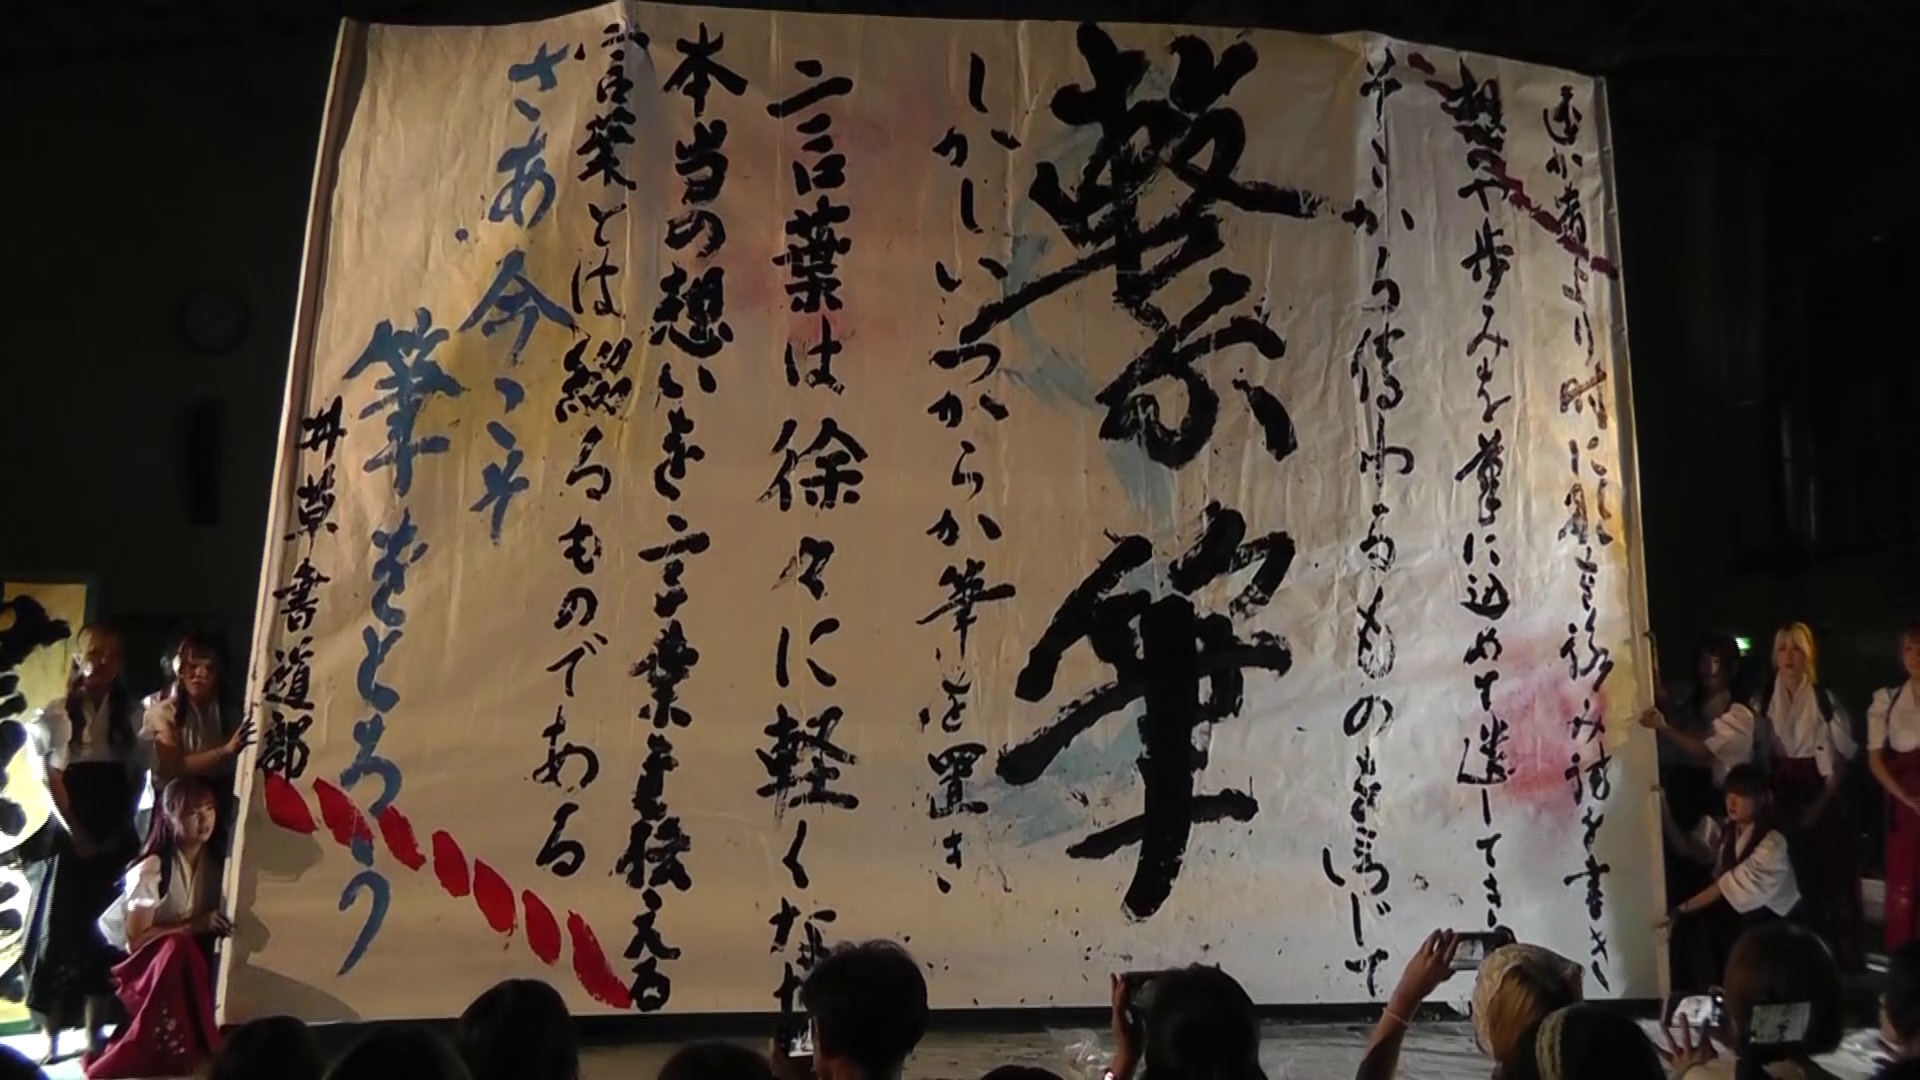 遥か昔より時に歌を詠み詩を書き
想いや歩みを筆に込めて遺してきた
そこから傳わるものを信じて
繋筆
しかしいつからか筆を置き
言葉は徐々に軽くなった
本当の想いを言葉を伝える
言葉とは綴るものである
さあ今こそ
筆をとろう
井草書道部